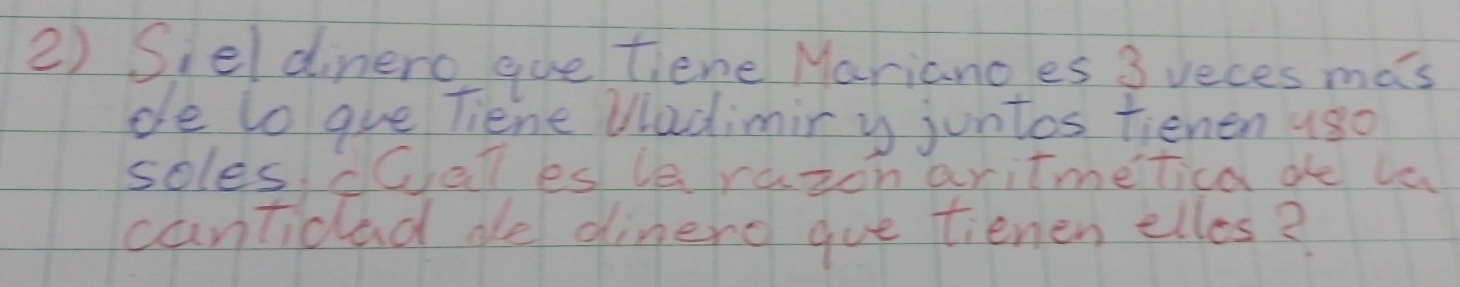 2) Si el dinero que tiene Mariano es 3 veces más
de lo que Tiene Vladimir y juntos tienen 480
soles, ¿Cual es la razón aritmética de la
cantidad de dinero que tienen ellos?